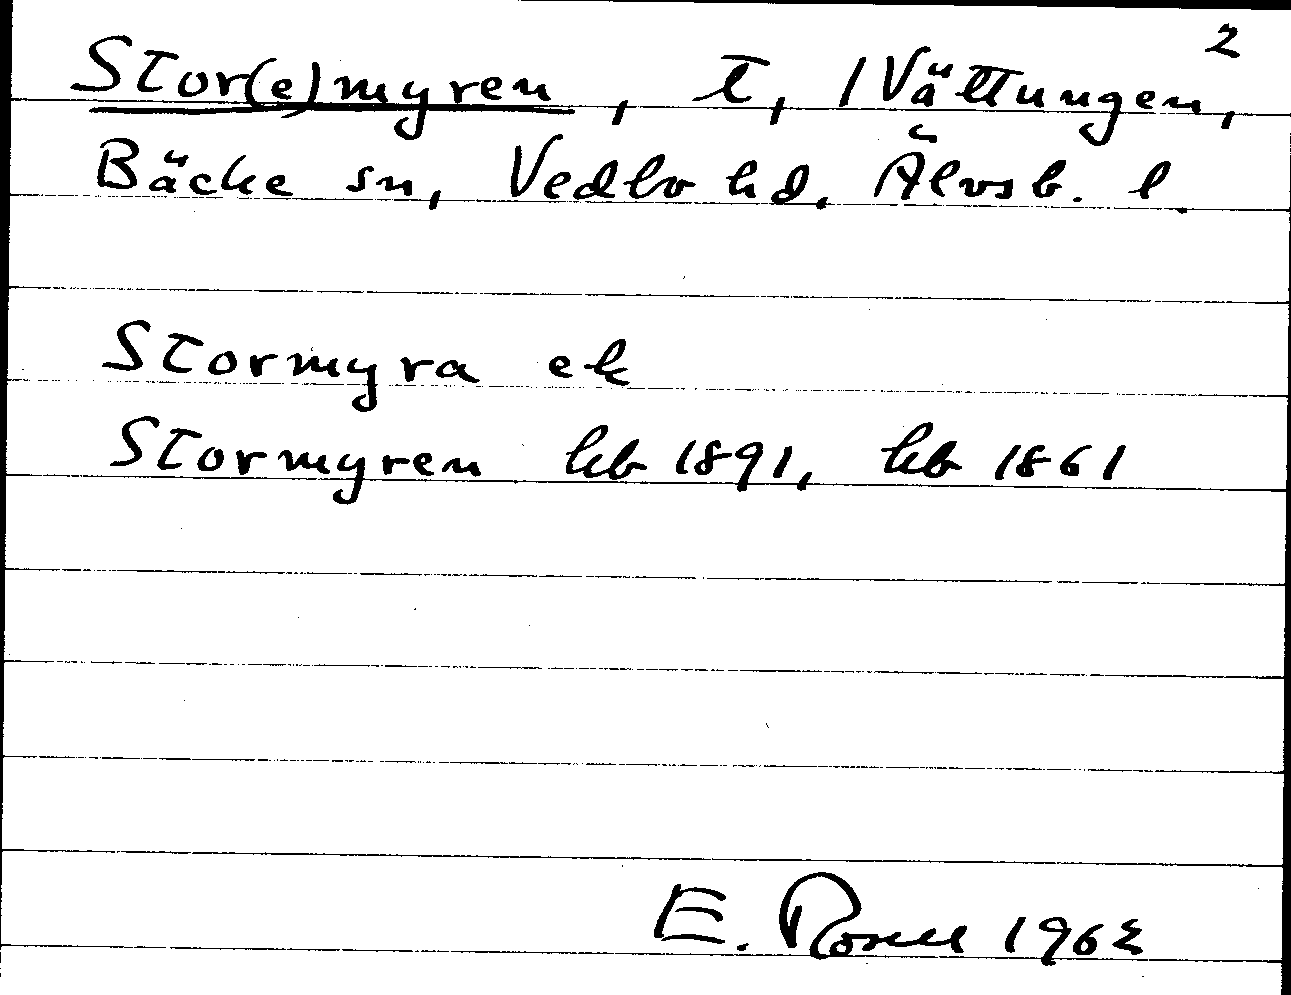 2
Stor(e)myren, t, /Vättungen,
Bäcke sn, Vedbo hd. Älvsb. l.
Stormyra ek
Stormyren hb 1891, hb 1861
E. Rosell 1962